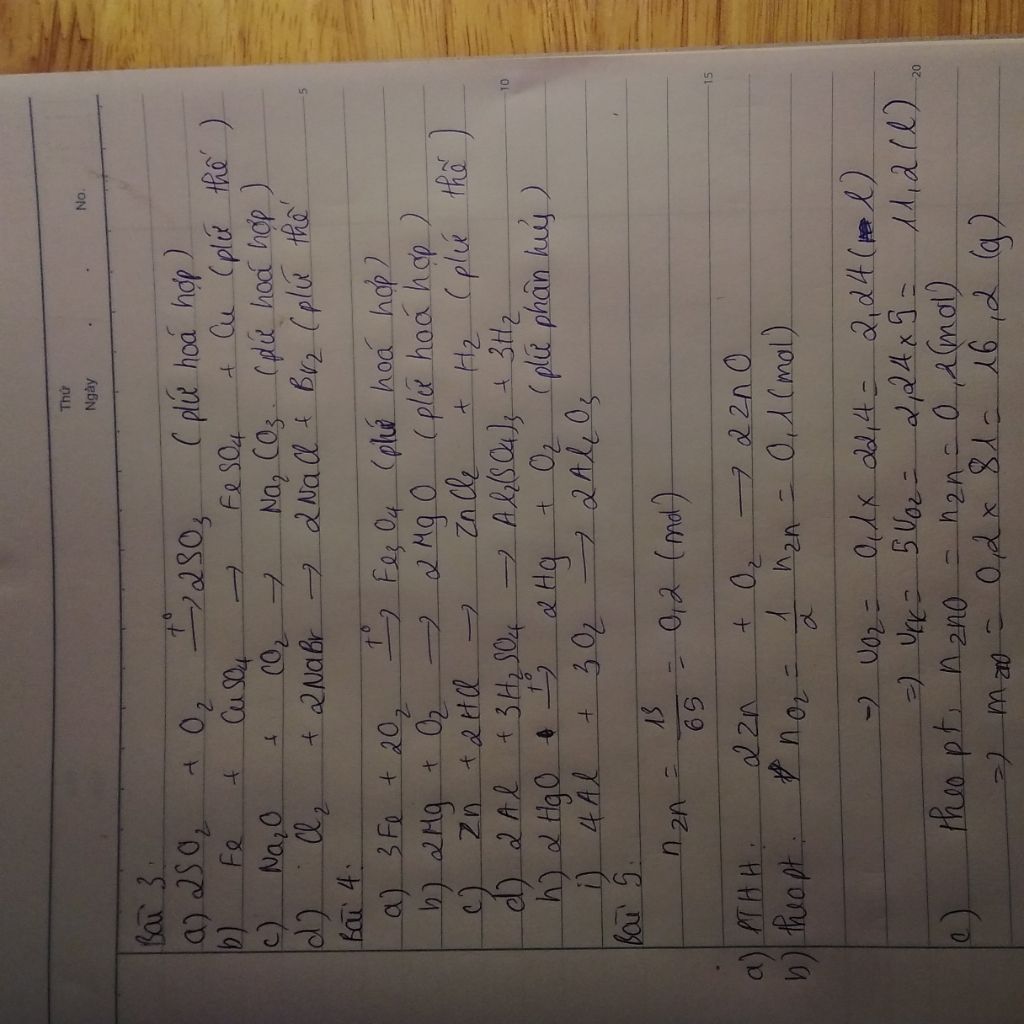 Thứ
Ngày . . No.
Bài 3.
a) 2SO2 + O2 —t°→ 2SO3 (pứ hoá hợp)
b) Fe + CuSO4 → FeSO4 + Cu (pứ thế)
c) Na2O + CO2 → Na2CO3 (pứ hoá hợp)
d) Cl2 + 2NaBr → 2NaCl + Br2 (pứ thế)
5
Bài 4.
a) 3Fe + 2O2 —t°→ Fe3O4 (pứ hoá hợp)
b) 2Mg + O2 → 2MgO (pứ hoá hợp)
c) Zn + 2HCl → ZnCl2 + H2 (pứ thế)
d) 2Al + 3H2SO4 → Al2(SO4)3 + 3H2
10
h) 2HgO —t°→ 2Hg + O2 (pứ phân hủy)
i) 4Al + 3O2 → 2Al2O3
Bài 5.
nZn = 13/65 = 0,2 (mol)
15
a) PTHH. 2Zn + O2 → 2ZnO
b) theo pt. nO2 = 1/2 nZn = 0,1 (mol)
=> VO2 = 0,1 x 22,4 = 2,24 (l)
=> Vkk = 5VO2 = 2,24 x 5 = 11,2 (l)
20
c) theo pt, nZnO = nZn = 0,2 (mol)
=> mZnO = 0,2 x 81 = 16,2 (g)